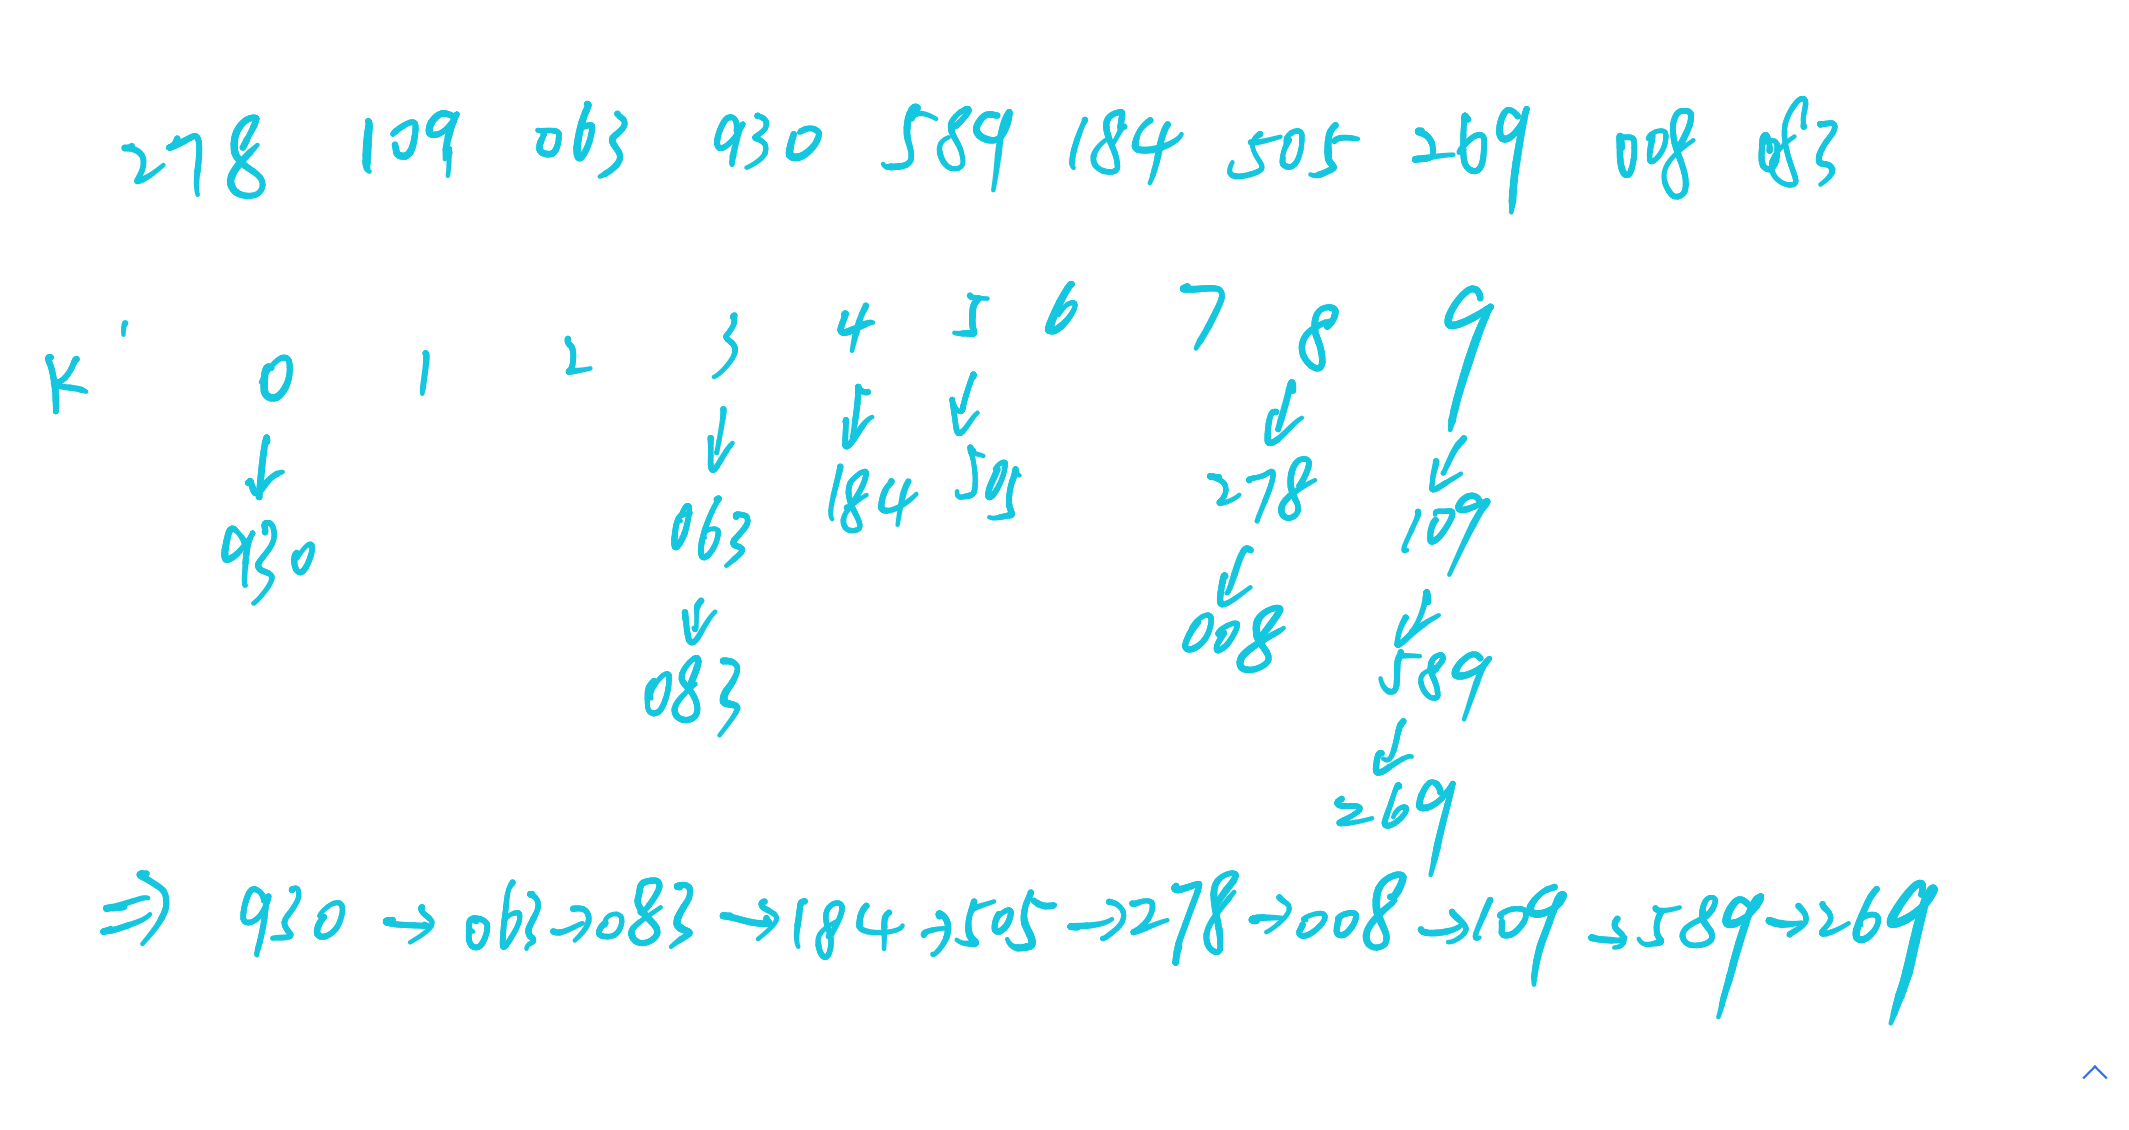 278 109 063 930 589 184 505 269 008 083
K' 0 1 2 3 4 5 6 7 8 9
↓ ↓ ↓ ↓ ↓ ↓
930 063 184 505 278 109
↓ ↓ ↓
083 008 589
↓
269
⇒ 930 → 063 → 083 → 184 → 505 → 278 → 008 → 109 → 589 → 269